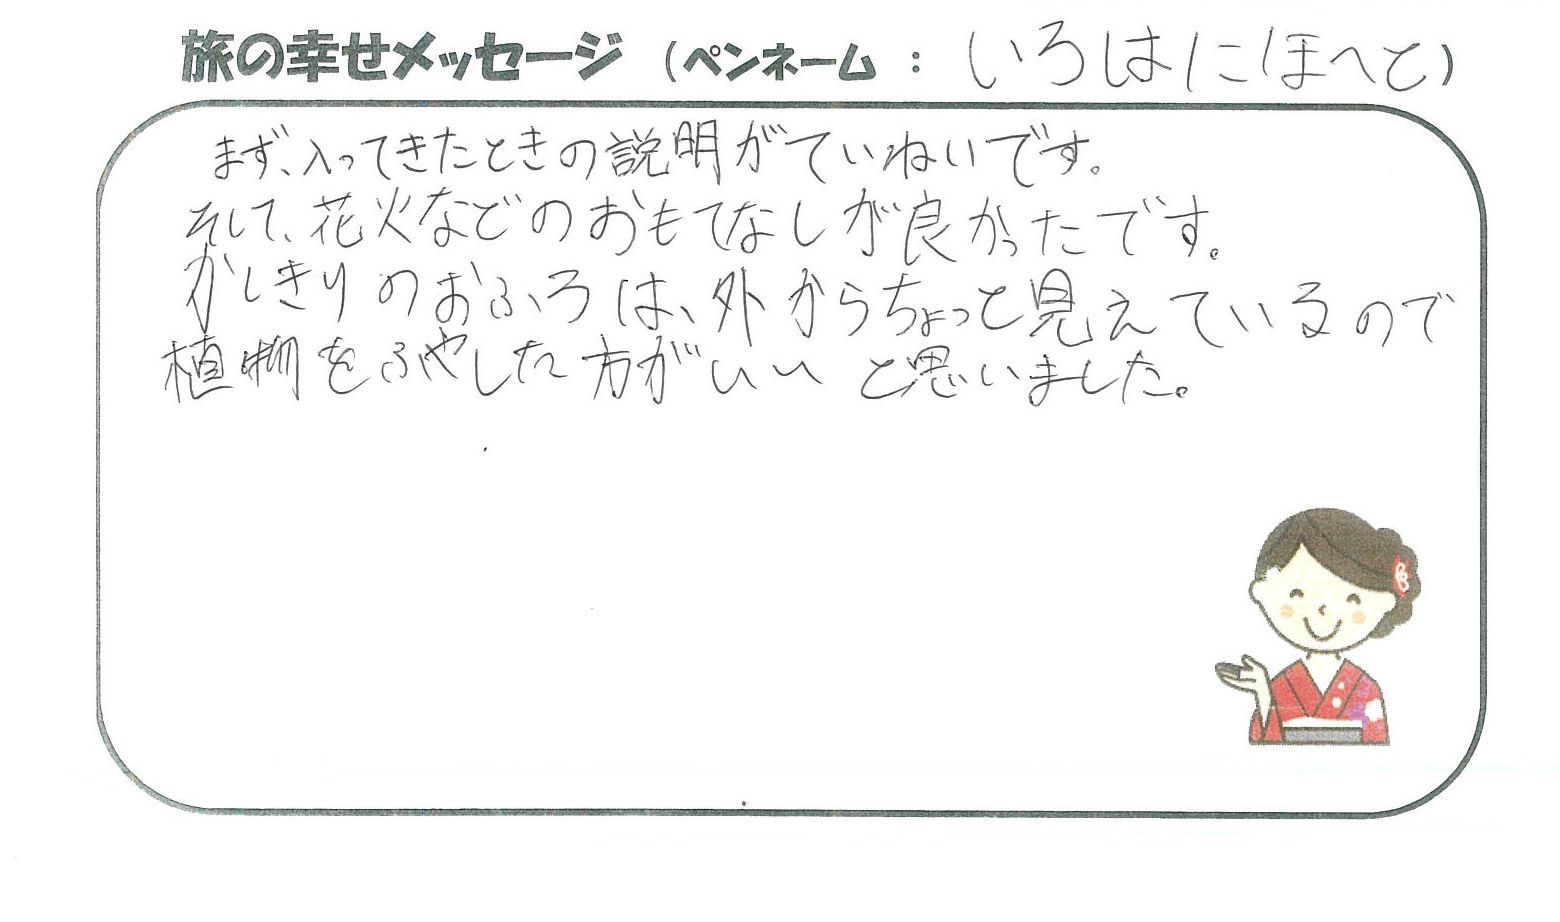 旅の幸せメッセージ （ペンネーム ： いろはにほへと）
まず、入ってきたときの説明がていねいです。
そして、花火などのおもてなしが良かったです。
かしきりのおふろは、外からちょっと見えているので
植物をふやした方がいいと思いました。